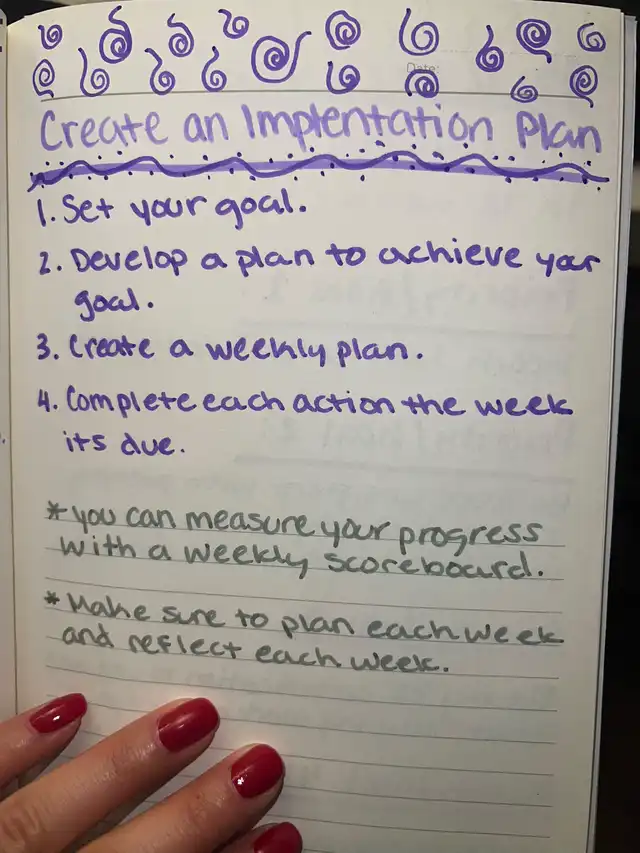 Date:
Create an Implentation Plan
1. Set your goal.
2. Develop a plan to achieve your
goal.
3. Create a weekly plan.
4. Complete each action the week
its due.
*you can measure your progress
with a weekly scoreboard.
*Make sure to plan each week
and reflect each week.